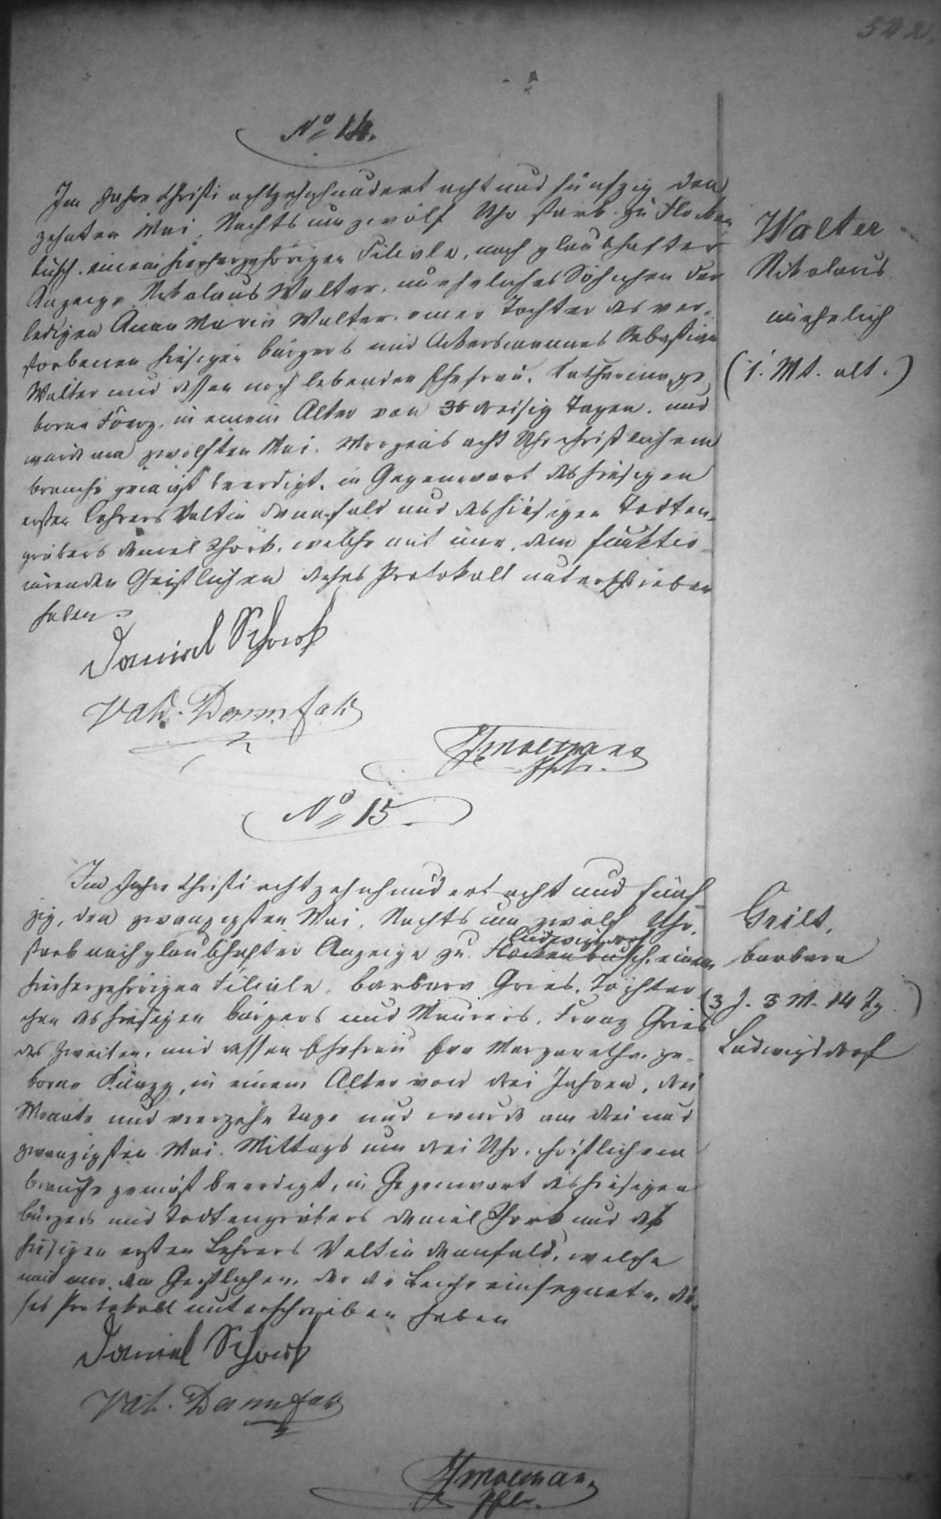 522.
No 14.
Im Jahre Christi achtzehnhundert acht und fünfzig den
zehnten Mai, Nachts um zwölf Uhr starb zu Flocken
busch, einem hierher gehörigen Filiale, nach glaubhafter
Anzeige Nikolaus Walter, uneheliches Söhnchen der
ledigen Anna Maria Walter, einer Tochter des ver-
storbenen hiesigen Bürgers und Ackersmannes Sebastian
Walter und dessen noch lebenden Ehefrau, Katharina ge
borne in einem Alter von dreisig Tagen, und
wurde am zwölften Mai, Morgens acht Uhr christlichem
Brauche gemäß beerdigt, in Gegenwart des hiesigen
ersten Lehrers Valtin Dannfald und des hiesigen Todten-
gräbers Daniel Schork, welche mit mir, dem funktio-
nirenden Geistlichen dieses Protokoll unterschrieben
haben.
Daniel Schork
Valt. Dannfald
Pfr.
Walter
Nikolaus
unehelich
(1. Mt. alt.)
No 15.
Im Jahre Christi achtzehnhundert acht und fünf-
zig, den zwanzigsten Mai, Nachts um zwölf Uhr,
Ludwigsdorf
starb nach glaubhafter Anzeige zu Flockenbusch, einem
hierher gehörigen Filiale, Barbara Gries, Töchter
chen des hiesigen Bürgers und Maurers, Franz Gries
des Zweiten, und dessen Ehefrau Eva Margaretha, ge-
borne in einem Alter von drei Jahren, drei
Monate und vierzehn Tage und wurde am drei und
zwanzigsten Mai, Mittags um drei Uhr, christlichem
Brauche gemäß beerdigt, in Gegenwart des hiesigen
Bürgers und Todtengräbers Daniel Schork und des
hiesigen ersten Lehrers Valtin Dannfald, welche
mit mir, dem Geistlichen, der die Leiche einsegnete, die-
ses Protokoll unterschrieben haben
Daniel Schork
Valt. Dannfald
Pfr.
Barbara
(3 J. 3 M. 14 Tg.)
Ludwigsdorf